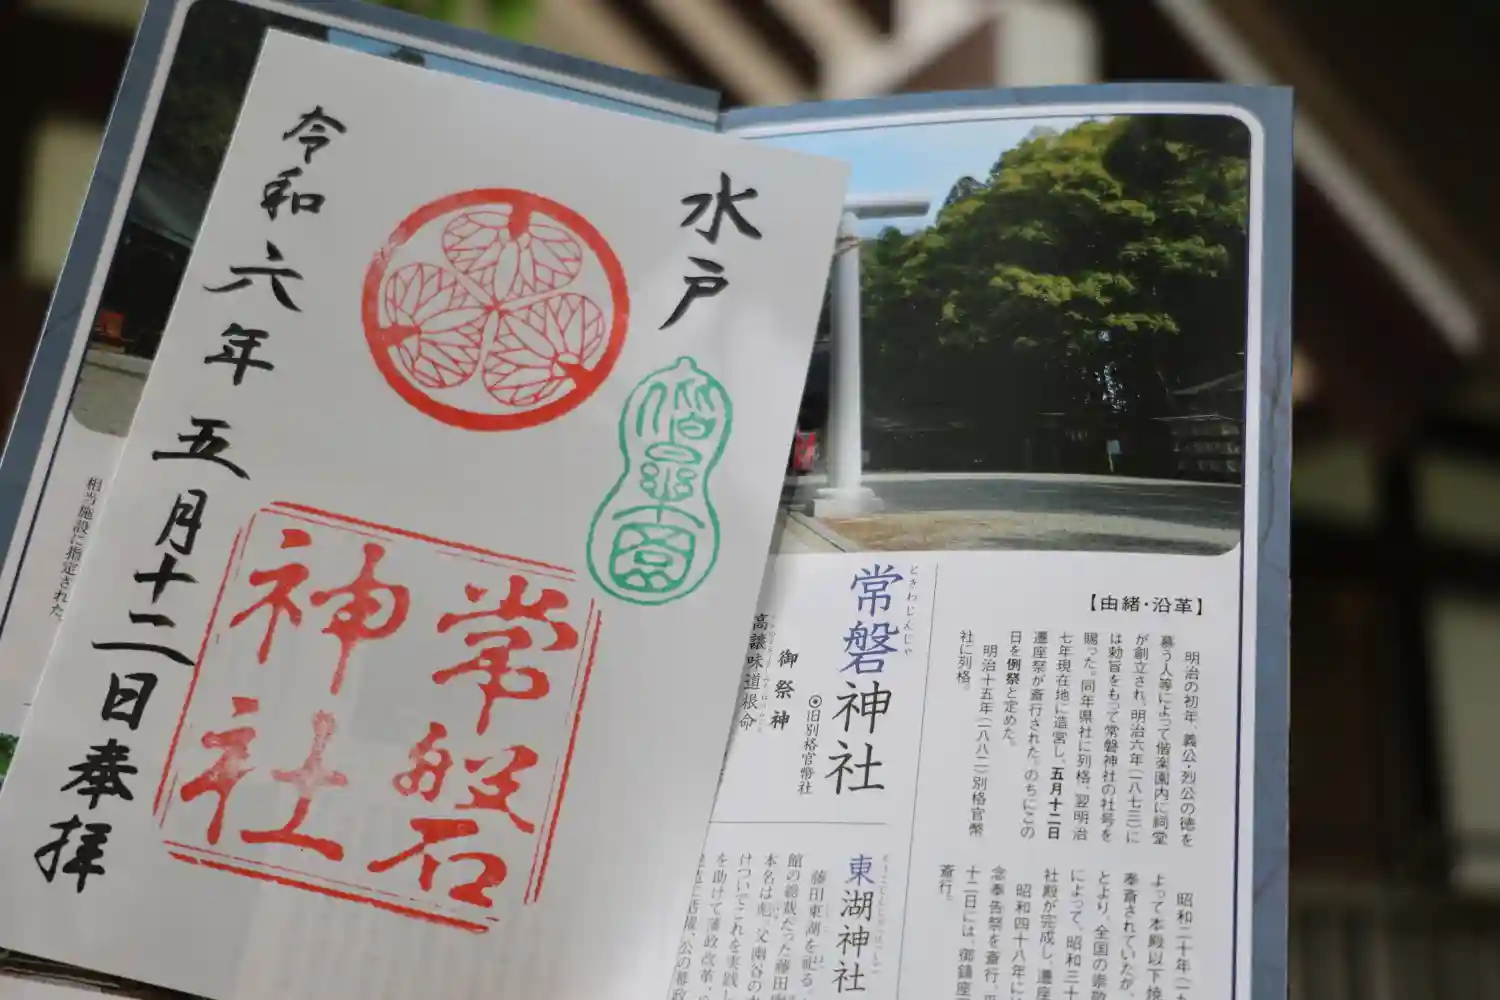 水戸
偕楽園
常磐
神社
令和六年五月十二日奉拝
【由緒・沿革】
明治の初年、義公・烈公の徳を
慕う人等によって偕楽園内に祠堂
が創立され、明治六年(一八七三)に
は勅旨をもって常磐神社の社号を
賜った。同年県社に列格、翌明治
七年現在地に造営し、五月十二日
遷座祭が斎行された。のちにこの
日を例祭と定めた。
明治十五年(一八八二)別格官幣
社に列格。
昭和二十年(一九
よって本殿以下焼
奉斎されていたが、
とより、全国の崇敬
によって、昭和三十
社殿が完成し、遷座
昭和四十八年に
念奉告祭を斎行、平
十二日には、御鎮座
斎行。
ときわじんじゃ
常磐神社
◎旧別格官幣社
御祭神
高譲味道根命
東湖神社
藤田東湖を祀る。
館の総裁だった藤田
本名は彪。父幽谷の
け、ついでこれを実践し
を助けて藩政改革、
相当施設に指定された。